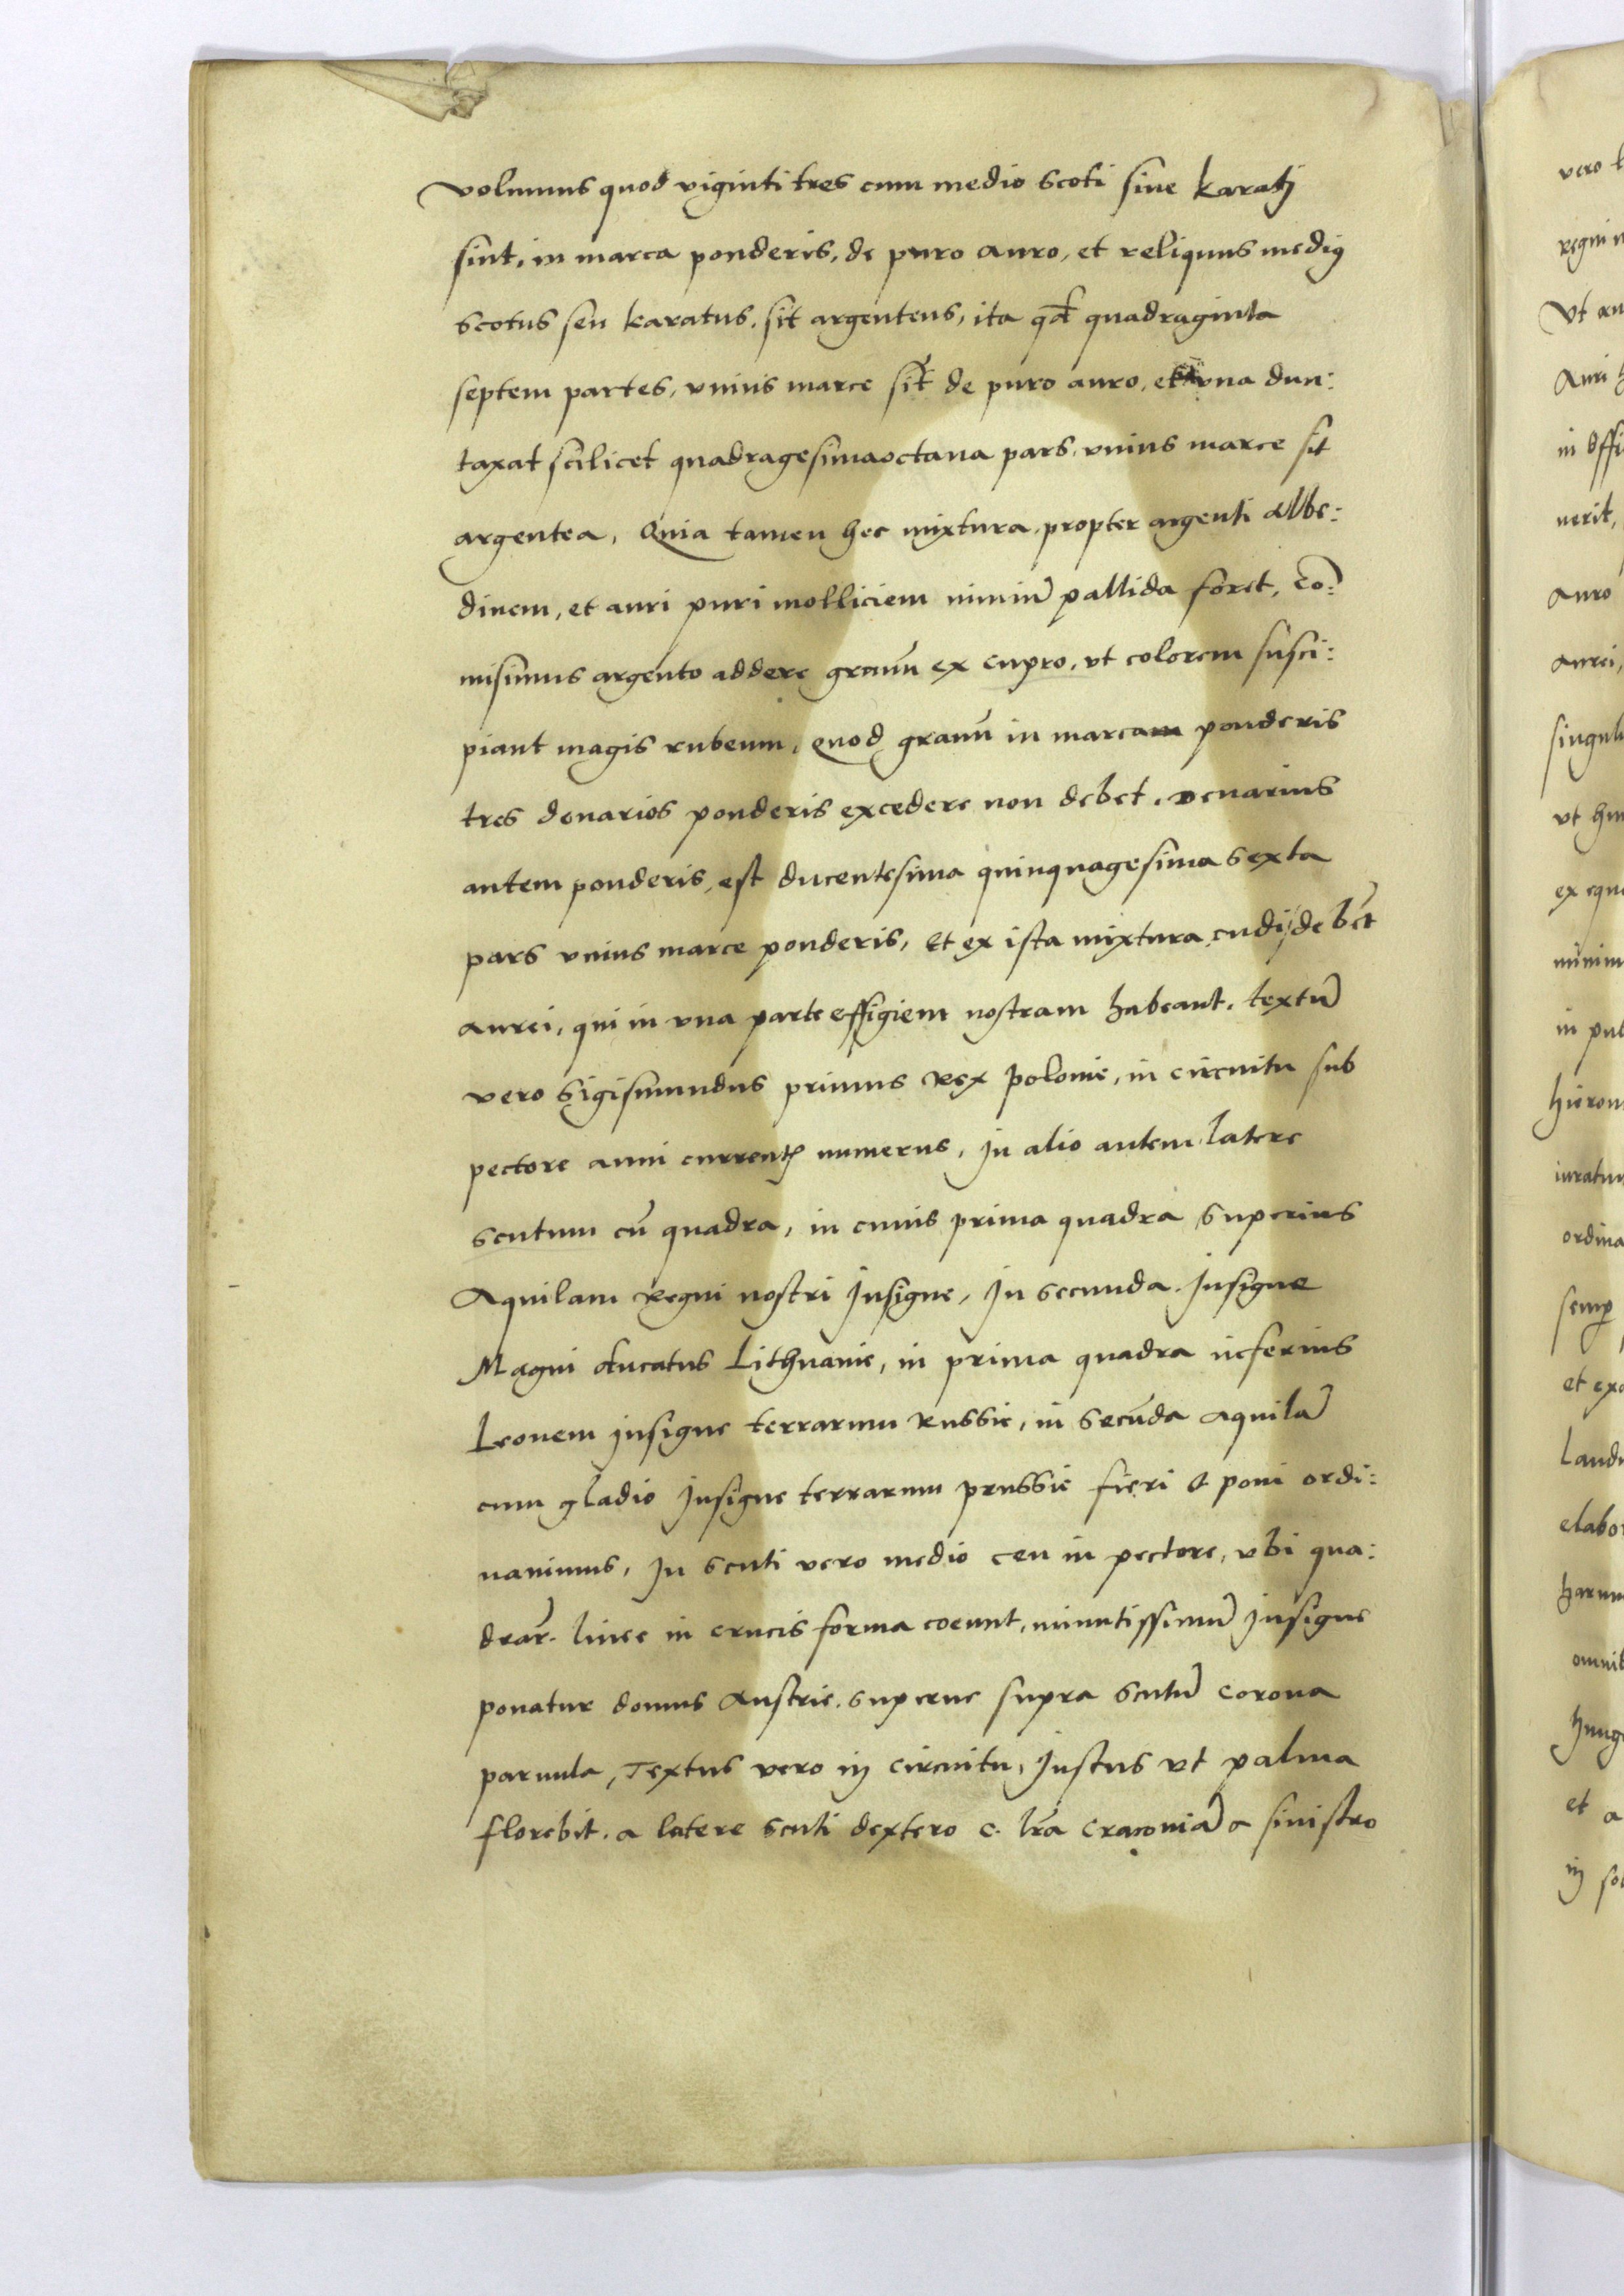 volumus quod viginti tres cum medio scoti siue karatj
sint, in marca ponderis, de puro auro, et reliquus mediꝰ
scotus seu karatus, sit argenteus, ita qđ quadraginta
septem partes, vnius marce sīt de puro auro, et vna dun:
taxat scilicet quadragesimaoctaua pars, vnius marce sit
argentea, Quia tamen hec mixtura, propter argenti albe:
dinem, et auri puri molliciem nimiū pallida foret, cō:
misimus argento addere granū ex cupro, vt colorem susci:
piant magis rubeum, quod granū in marcam ponderis
tres denarios ponderis excedere non debet, Denarius
autem ponderis, est ducentesima quinquagesima sexta
pars vnius marce ponderis, Et ex ista mixtura cudi debēt
aurei, qui in vna parte effigiem nostram habeant, textū
vero Sigismundus primus Rex polonie, in circuitu sub
pectore anni currentꝭ numerus, in alio autem latere
scutum cū quadra, in cuius prima quadra superius
Aquilam Regni nostri Insigne, In secunda Insigne
Magni ducatus Lithuanie, in prima quadra inferius
Leonem insigne terrarum Russie, in secūda Aquilā
cum gladio Insigne terrarum prussie fieri & poni ordi:
nauimus, In scuti vero medio ceu in pectore, vbi qua:
drar̃. linee in crucis forma coeunt, minutissimū Insigne
ponatur domus Austrie. superne supra scutū corona
paruula, Textus vero in circuitu, Justus vt palma
florebit. a latere scuti dextero c. lr̃a Cracouiā a sinistro
vero
regni
Vt
Auri
in offi
uerit,
Auro
Aurei,
singul
vt
ex equ
minim
in pub
hieron
iuratu
ordina
semꝑ
et exa
Laud
elabo
harum
omnib
hung
et a
in so